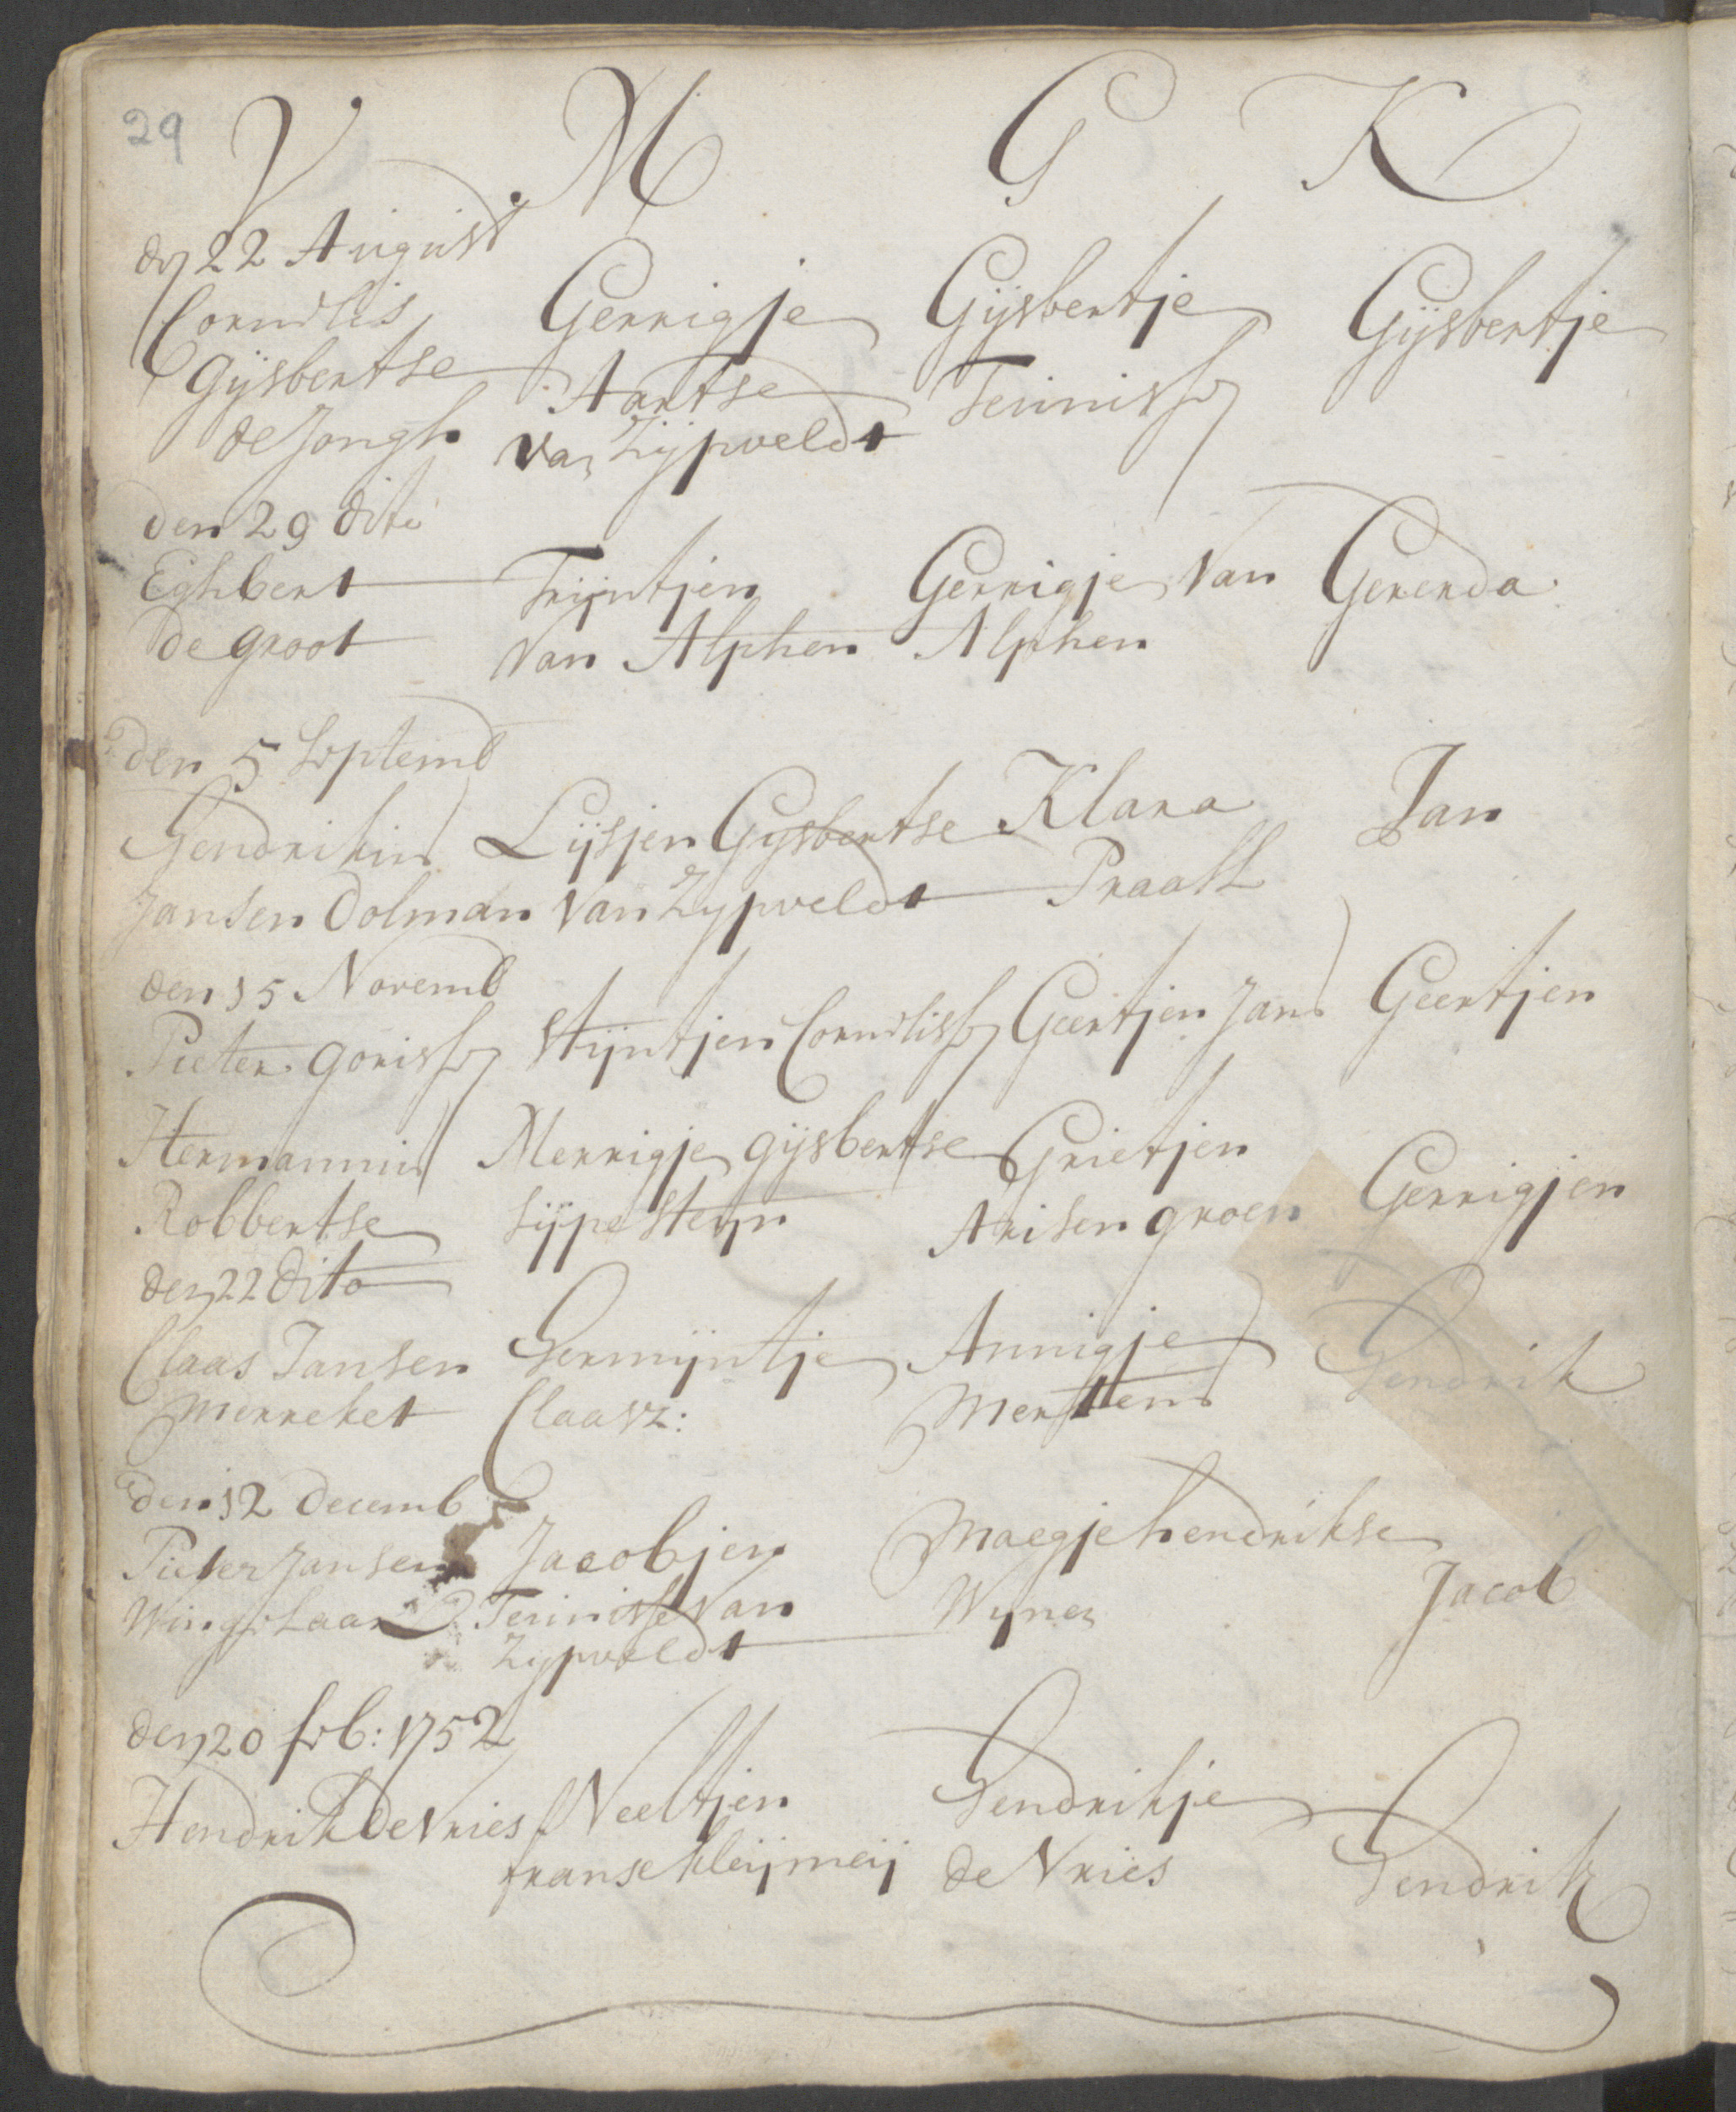 29
V M G K
den 22 August
Cornelis Gerrigje Gijsbertje Gijsbertje
Gijsbertse Aartse Teunisse
de Jongh van Zijpveldt
den 29 dito
Eghbert Trijntjen Gerrigje van Gererda
de groot van Alphen Alphen
den 5 Septemb
Hendrikus Lijsjen Gysbertse Klara Jan
Jansen Dolman van Zypveldt Praalt
den 15 Novemb
Pieter gorisse Stijntjen Cornelisse Geertjen Jans Geertjen
Hermannus Merrigje gijsbertse Grietjen Gerrigjen
Robbertse Sijpesteijn Arisen groen
den 22 dito
Claas Jansen Hermijntje Annigje Hendrik
Merreket Claasz: Mertens
den 12 Decemb
Pieter Jansen Jacobjen Maegje hendrikse Jacob
Wingelaar Teunisse van Wynen
Zypveldt
den 20 feb: 1752
Hendrik De Vries Neeltjen Hendrikje Hendrik
franse kleijmeij de Vries